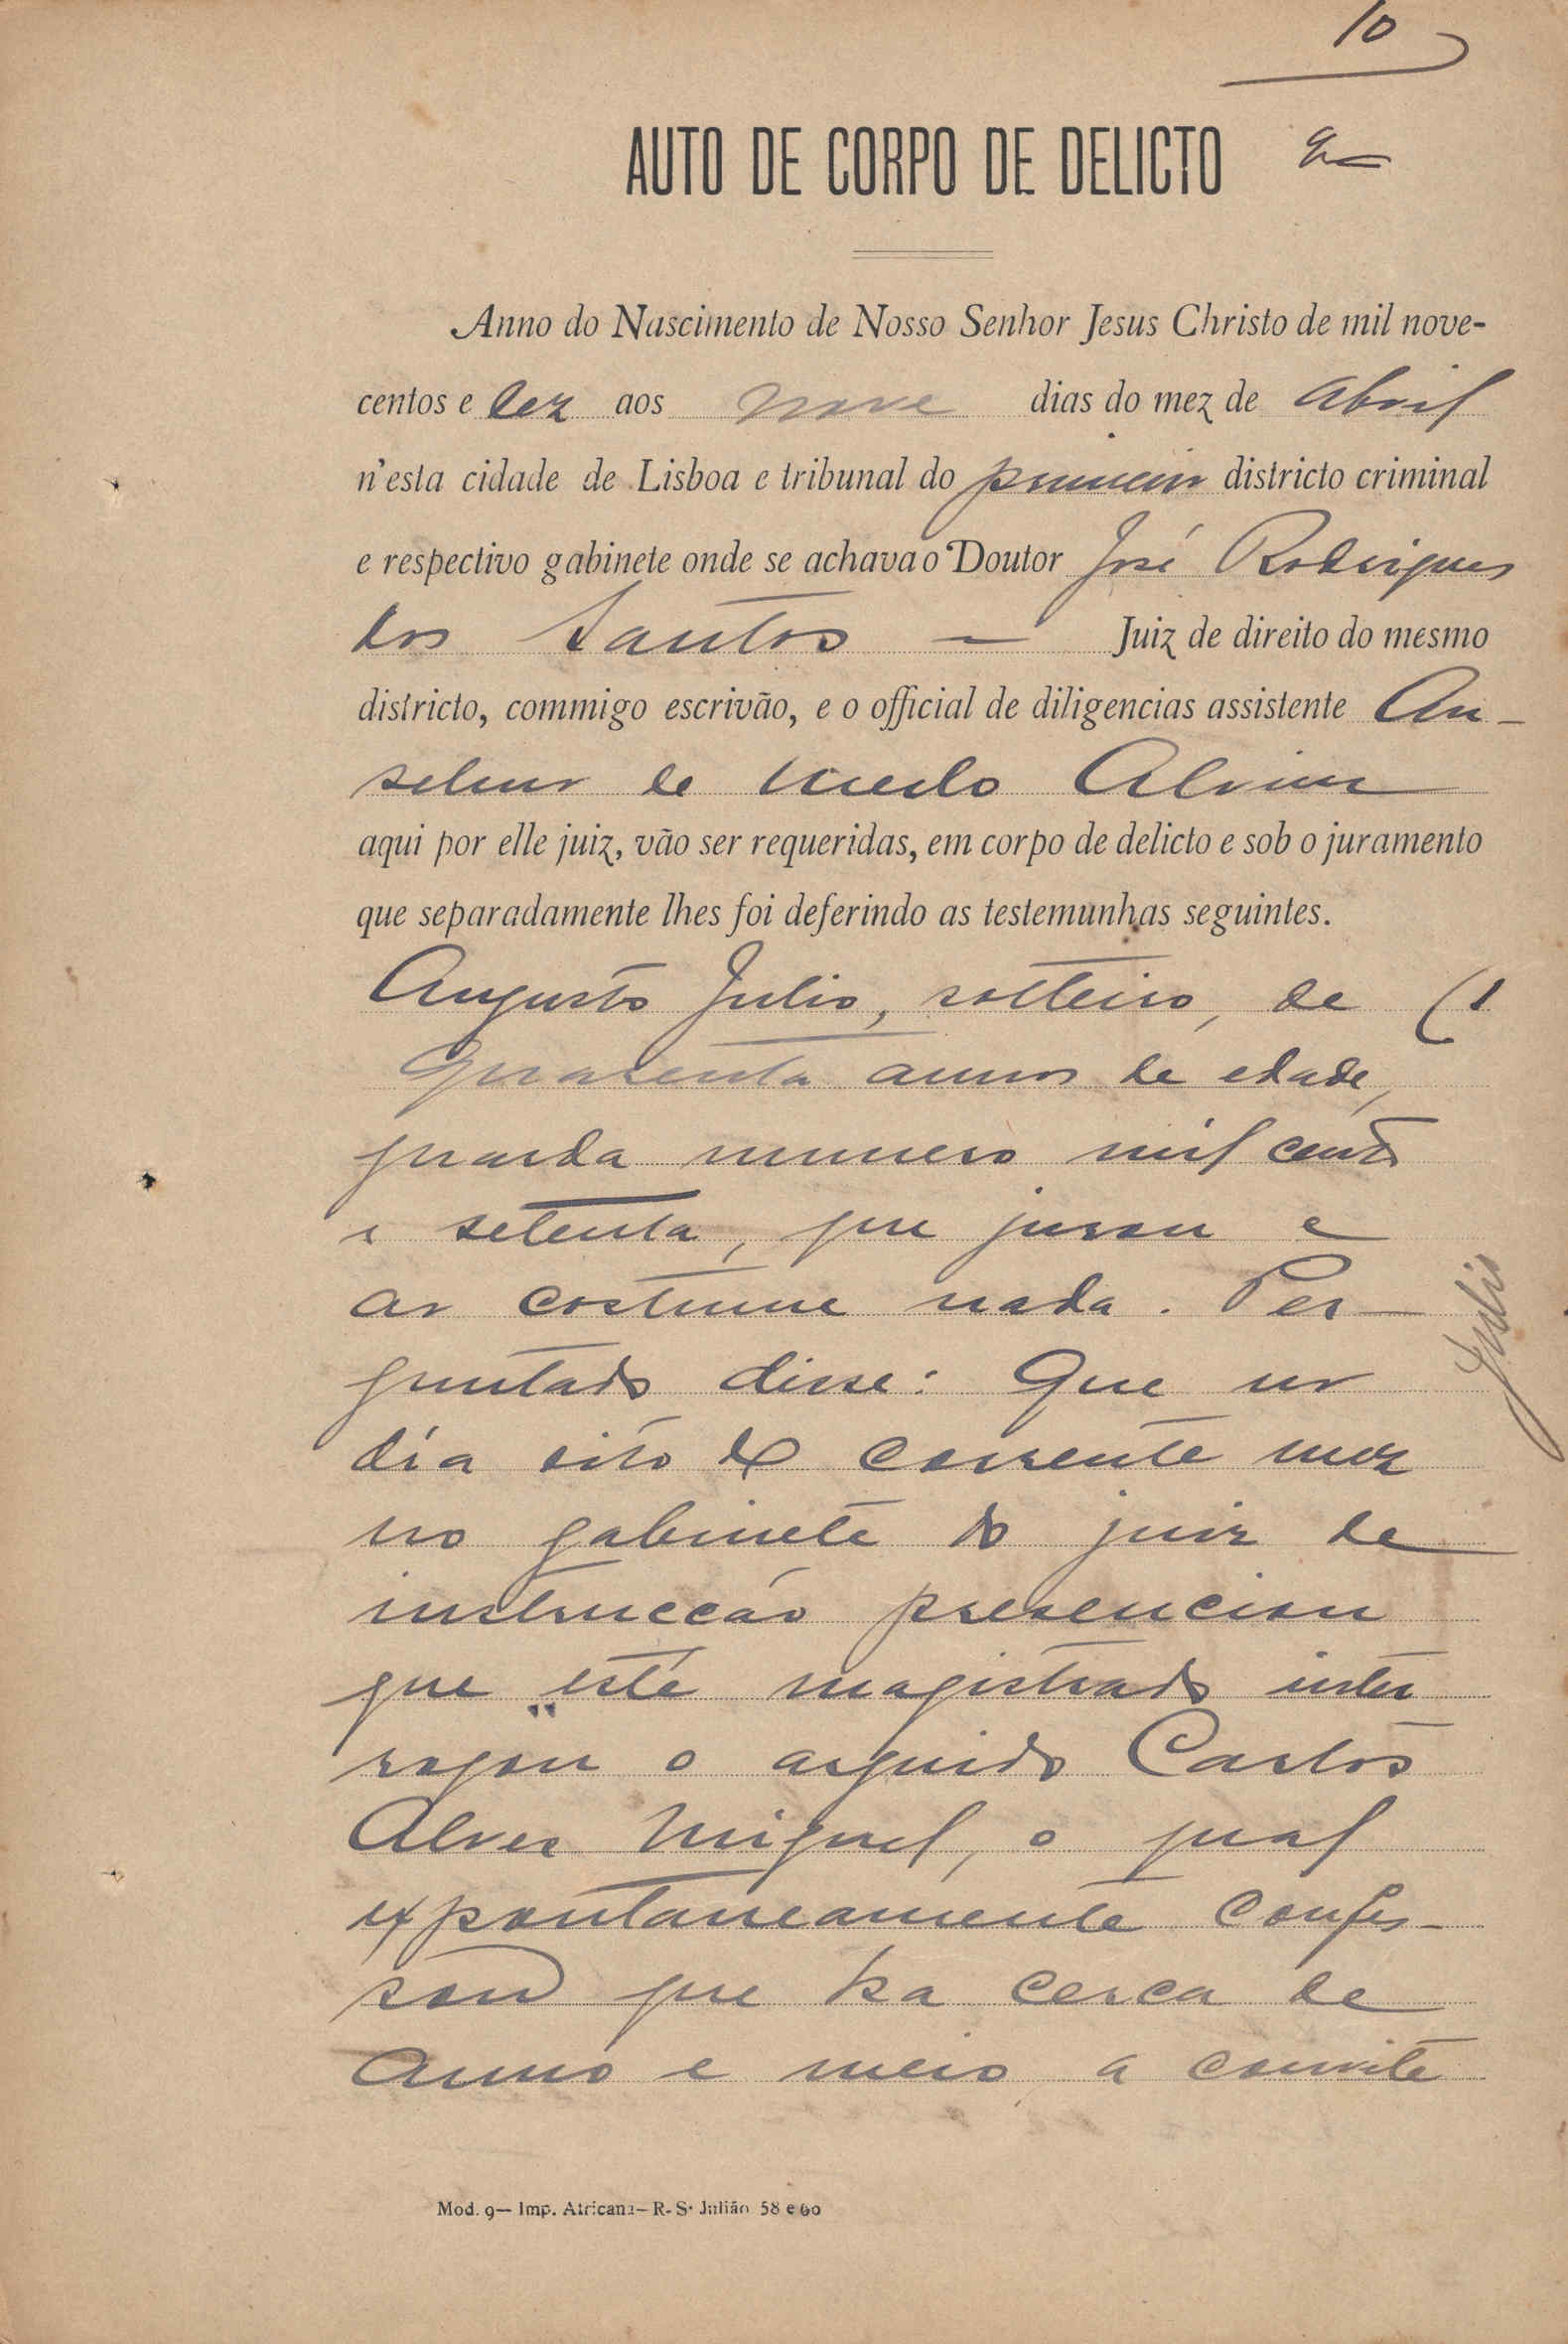 10
AUTO DE CORPO DE DELICTO
Anno do Nascimento de Nosso Senhor Jesus Christo de mil nove-
centos e dez aos nove dias do mez de Abril
n'esta cidade de Lisboa e tribunal do primeiro districto criminal
e respectivo gabinete onde se achava o Doutor José Rodrigues
dos Santos — Juiz de direito do mesmo
districto, commigo escrivão, e o official de diligencias assistente An-
selmo de Mello Alvim
aqui por elle juiz, vão ser requeridas, em corpo de delicto e sob o juramento
que separadamente lhes foi deferindo as testemunhas seguintes.
Augusto Julio, solteiro, de (1
Quarenta annos de edade,
guarda numero mil cento
e setenta, que jurou e
ao costume nada. Per-
guntado disse: Que no
dia oito do corrente mez
no gabinete do juiz de
instrucção presenciou
que este magistrado inter
rogou o arguido Carlos
Alves Miguel, o qual
expontaneamente confes-
sou que ha cerca de
anno e meio, a convite
Julio
Mod. 9— Imp. Africana—R. S. Julião 58 e 60